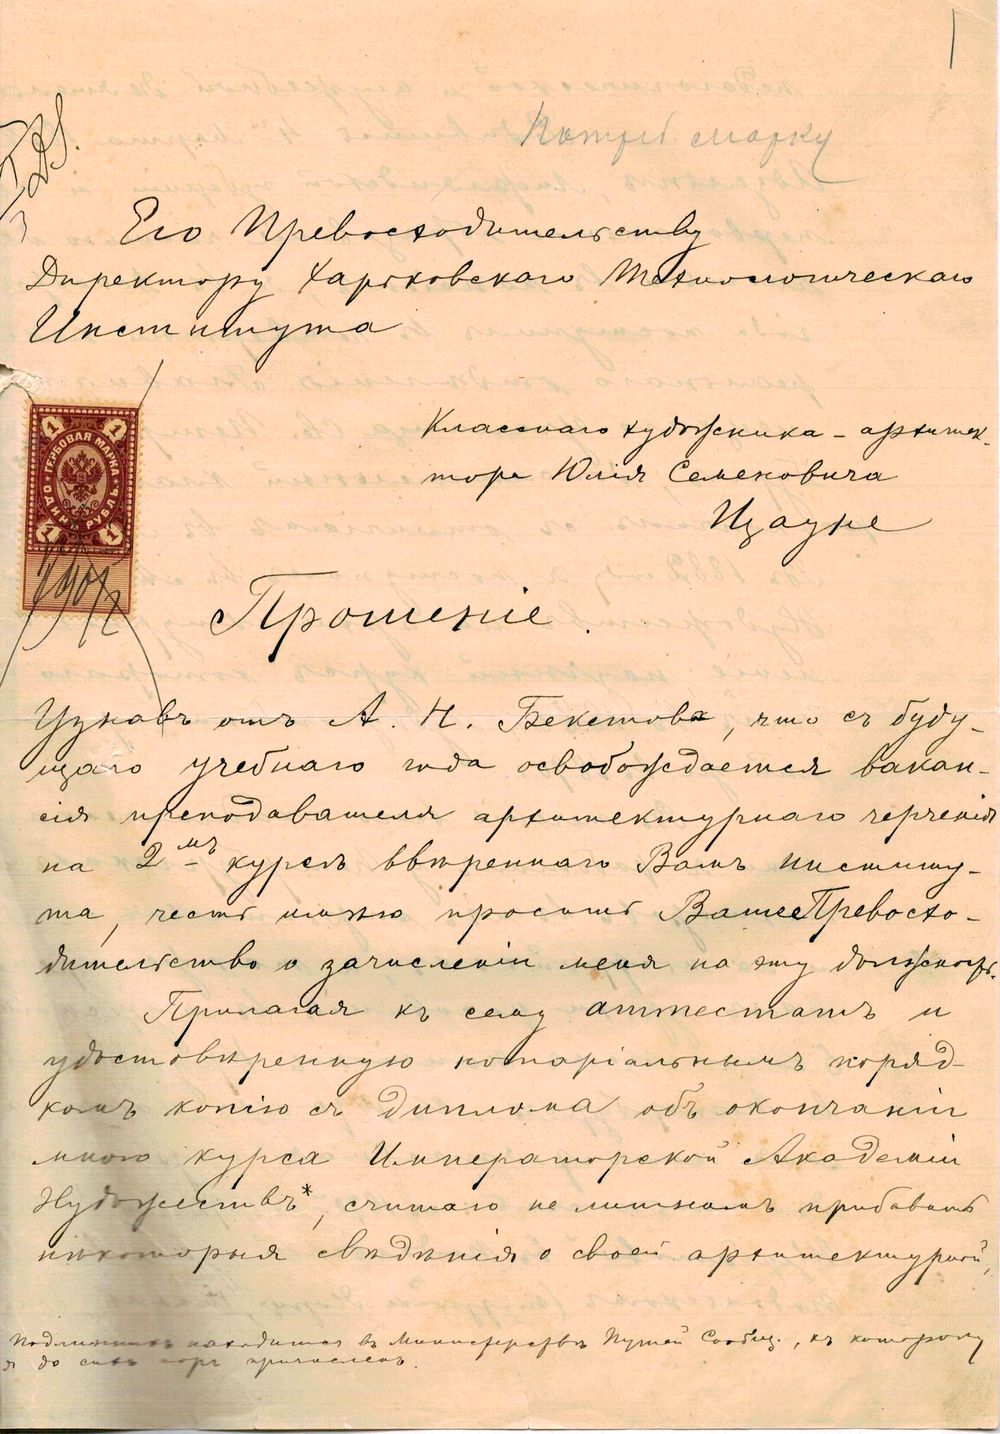 1
Потреб. марку
Его Превосходительству
Директору Харьковскаго Технологическаго
Института
1 1
ГЕРБОВАЯ МАРКА
ОДИНЪ РУБЛЬ
1 1
Класснаго художника - архитек-
тора Юлія Семеновича
Цауне
Прошеніе.
Узнавъ отъ А. Н. Бекетова, что съ буду-
щаго учебнаго года освобождается вакан-
сія преподавателя архитектурнаго черченія
на 2мъ курсѣ ввѣреннаго Вамъ институ-
та, честь имѣю просить Ваше Превосхо-
дительство о зачисленіи меня на эту должность.
Прилагая къ сему аттестатъ и
удостовѣренную нотаріальнымъ поряд-
комъ копію съ диплома объ окончаніи
мною курса Императорской Академіи
Художествъ*, считаю не лишнимъ прибавить
нѣкоторыя свѣдѣнія о своей архитектурной,
Подлинникъ находится въ Министерствѣ Путей Сообщ., къ которому
я до сихъ поръ причисленъ.